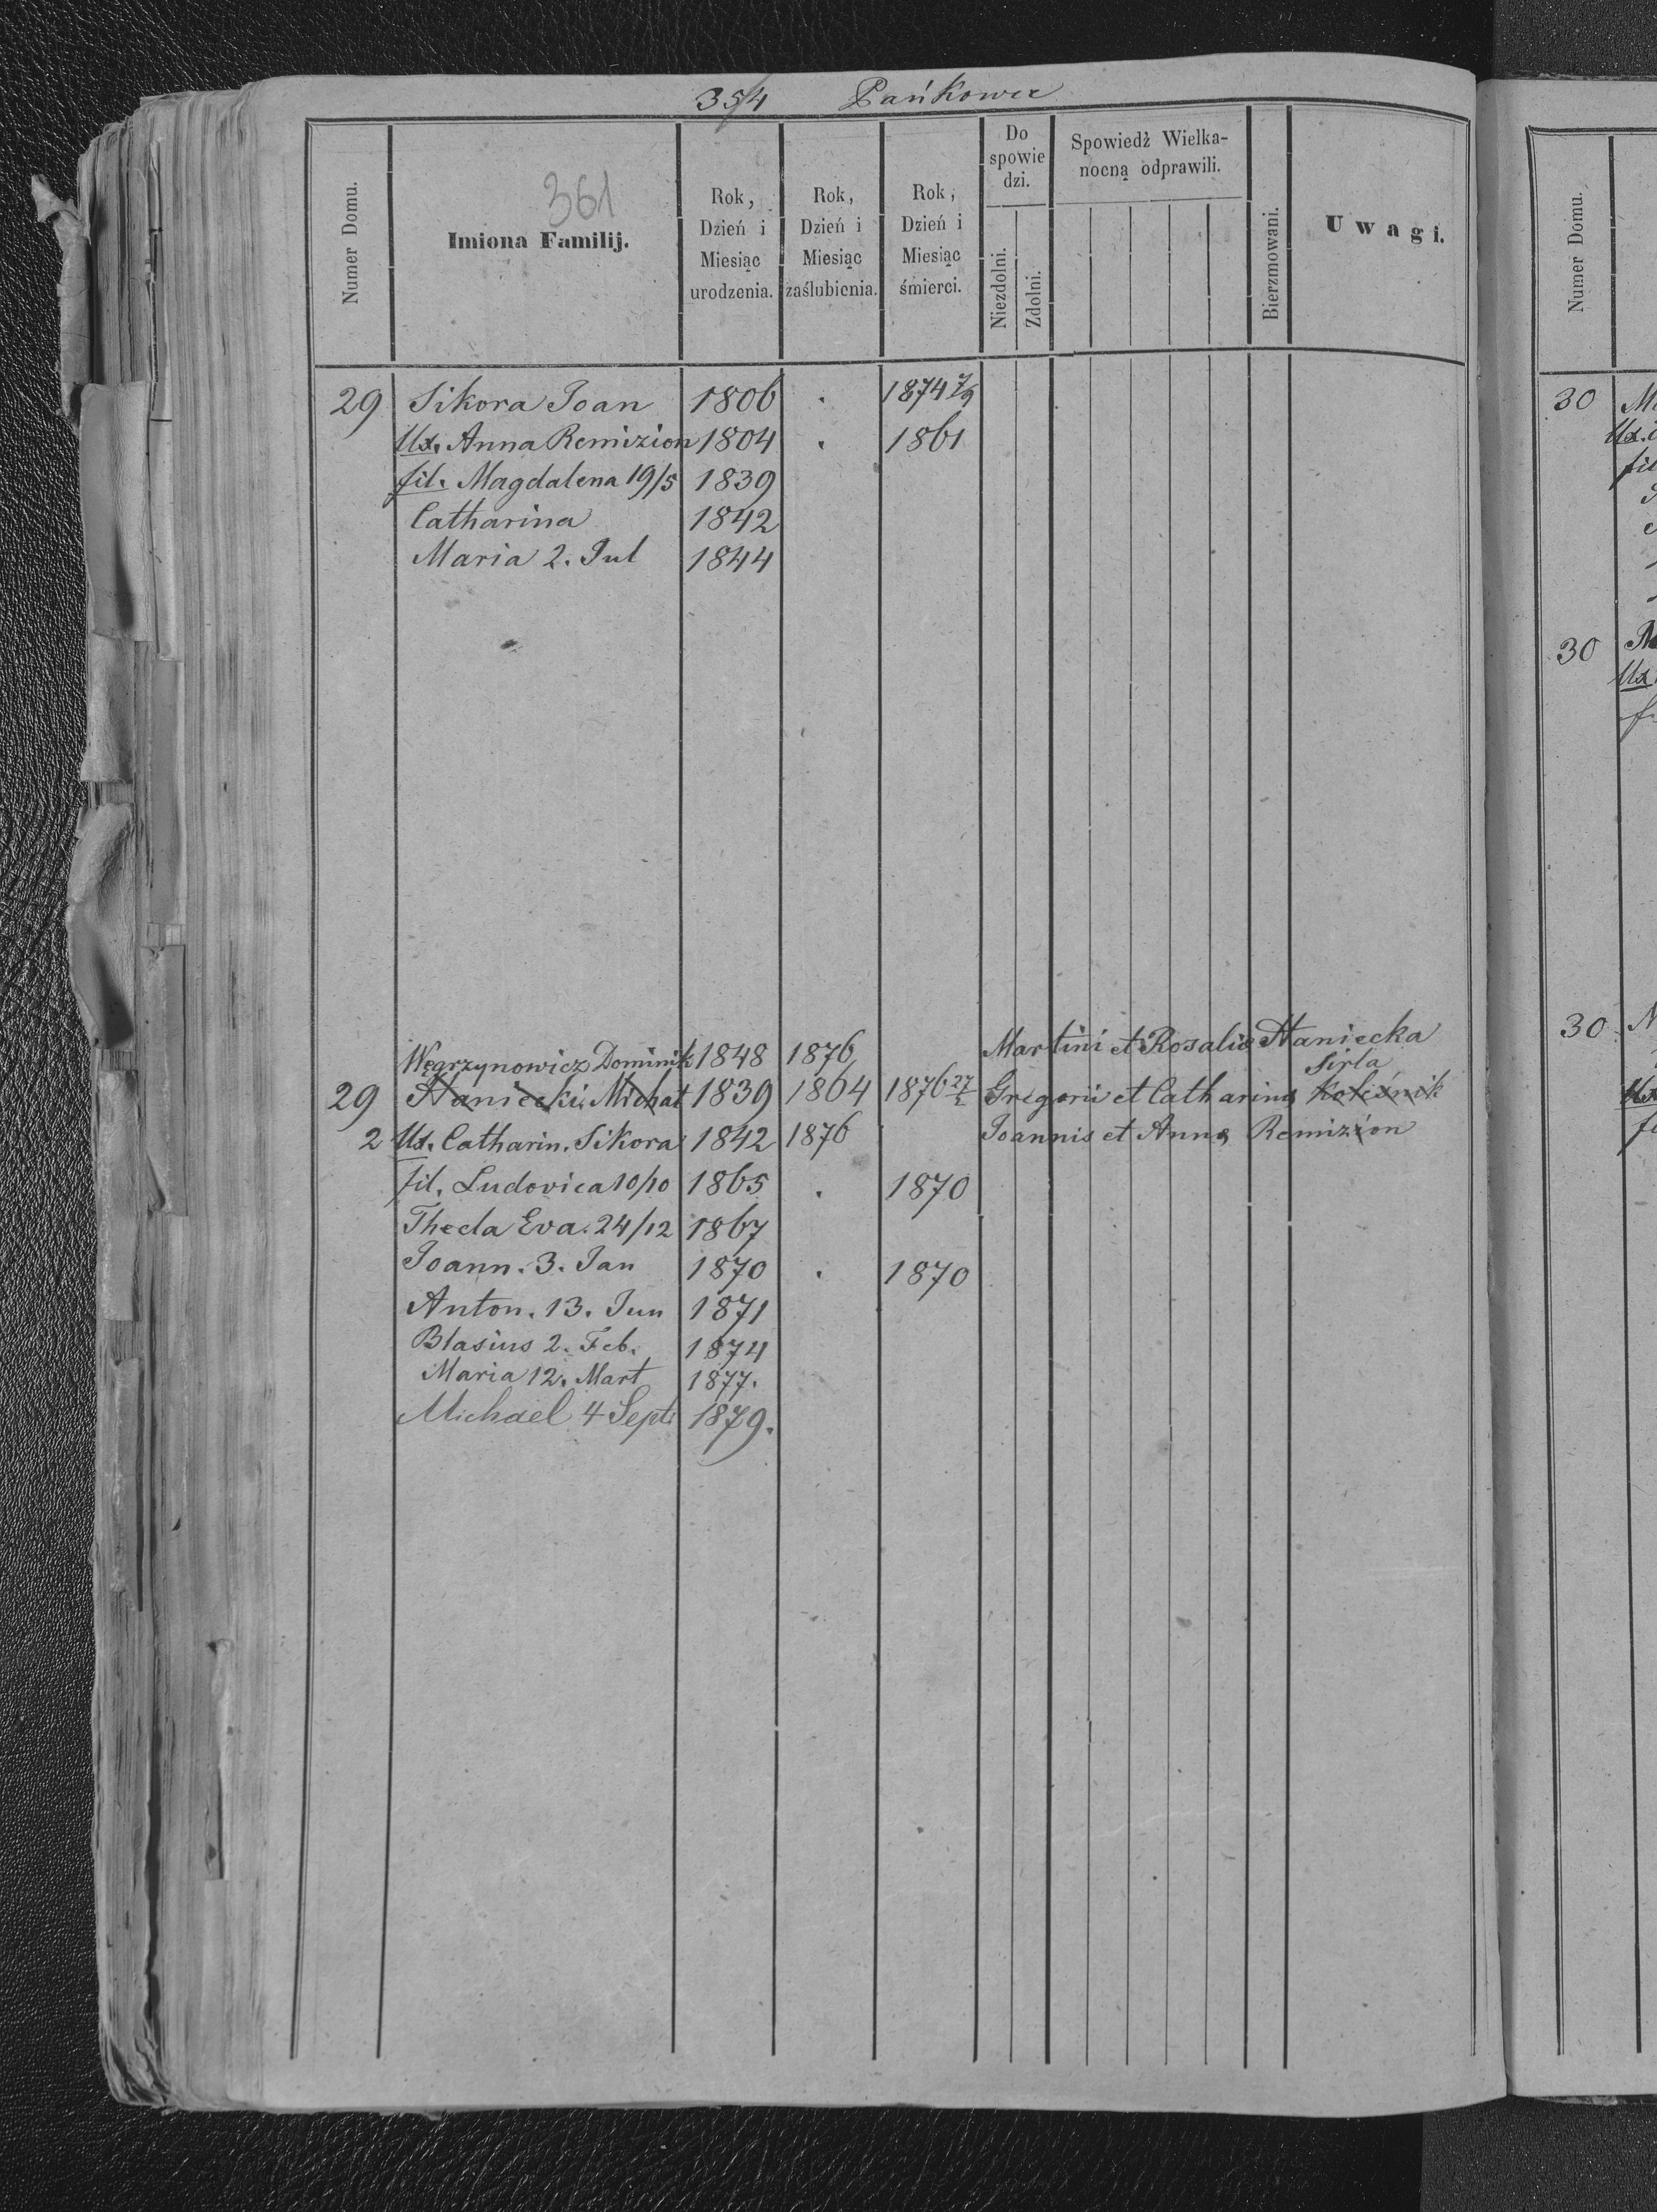 354 Pańkowce
361
Numer Domu.
Imiona Familij.
Rok, Dzień i Miesiąc urodzenia.
Rok, Dzień i Miesiąc zaślubienia.
Rok, Dzień i Miesiąc śmierci.
Do spowiedzi.
Niezdolni.
Zdolni.
Spowiedź Wielkanocną odprawili.
Bierzmowani.
Uwagi.
29 Sikora Joan 1806 . 1874 7/9
Ux. Anna Remizion 1804 . 1861
fil. Magdalena 19/5 1839
Catharina 1842
Maria 2. Jul 1844
Węgrzynowicz Dominik 1848 1876 Martini et Rosalie Staniecka
Sirla
29 Staniecki Michał 1839 1864 1876 27/2 Gregorii et Catharina Koleśnik
2 Ux. Catharin. Sikora 1842 1876 Joannis et Anna Remizion
fil. Ludovica 10/10 1865 . 1870
Thecla Eva. 24/12 1867
Joann. 3. Jan 1870 . 1870
Anton. 13. Jun 1871
Blasius 2. Feb. 1874
Maria 12. Mart 1877.
Michael 4 Septi 1879.
Numer Domu.
30
Ux.
30
Ux
30
Ux